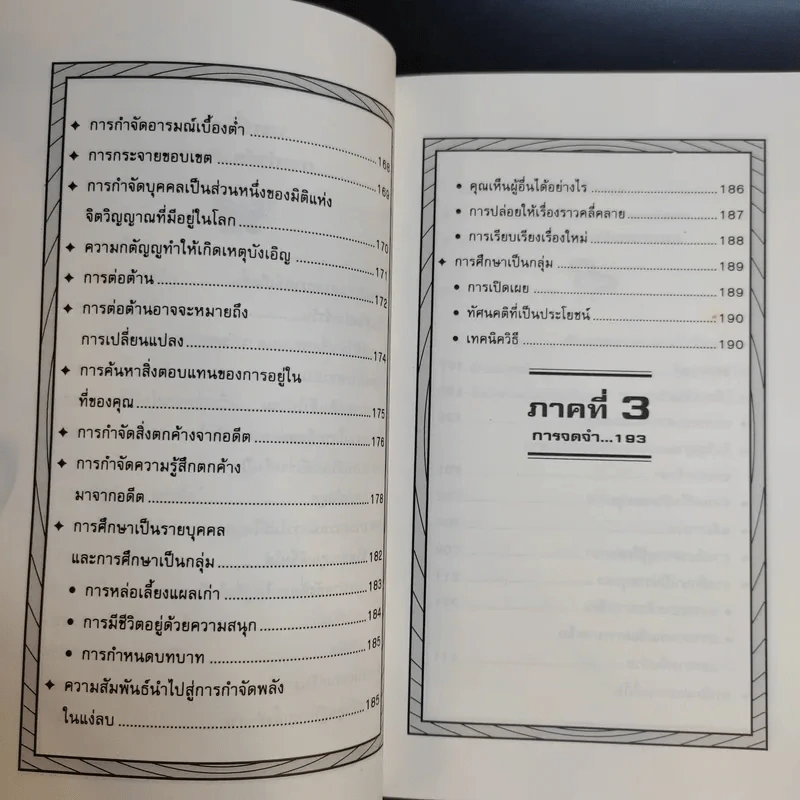 ✦ การกำจัดอารมณ์เบื้องต่ำ ........ 168
✦ การกระจายขอบเขต ........ 169
✦ การกำจัดบุคคลเป็นส่วนหนึ่งของมิติแห่ง
จิตวิญญาณที่มีอยู่ในโลก ........ 170
✦ ความกตัญญูทำให้เกิดเหตุบังเอิญ ........ 171
✦ การต่อต้าน ........ 172
✦ การต่อต้านอาจจะหมายถึง
การเปลี่ยนแปลง ........ 174
✦ การค้นหาสิ่งตอบแทนของการอยู่ใน
ที่ของคุณ ........ 175
✦ การกำจัดสิ่งตกค้างจากอดีต ........ 176
✦ การกำจัดความรู้สึกตกค้าง
มาจากอดีต ........ 178
✦ การศึกษาเป็นรายบุคคล
และการศึกษาเป็นกลุ่ม ........ 182
• การหล่อเลี้ยงแผลเก่า ........ 183
• การมีชีวิตอยู่ด้วยความสนุก ........ 184
• การกำหนดบทบาท ........ 185
✦ ความสัมพันธ์นำไปสู่การกำจัดพลัง
ในแง่ลบ ........ 185
• คุณเห็นผู้อื่นได้อย่างไร ........ 186
• การปล่อยให้เรื่องราวคลี่คลาย ........ 187
• การเรียบเรียงเรื่องใหม่ ........ 188
✦ การศึกษาเป็นกลุ่ม ........ 189
• การเปิดเผย ........ 189
• ทัศนคติที่เป็นประโยชน์ ........ 190
• เทคนิควิธี ........ 190
ภาคที่ 3
การจดจำ...193